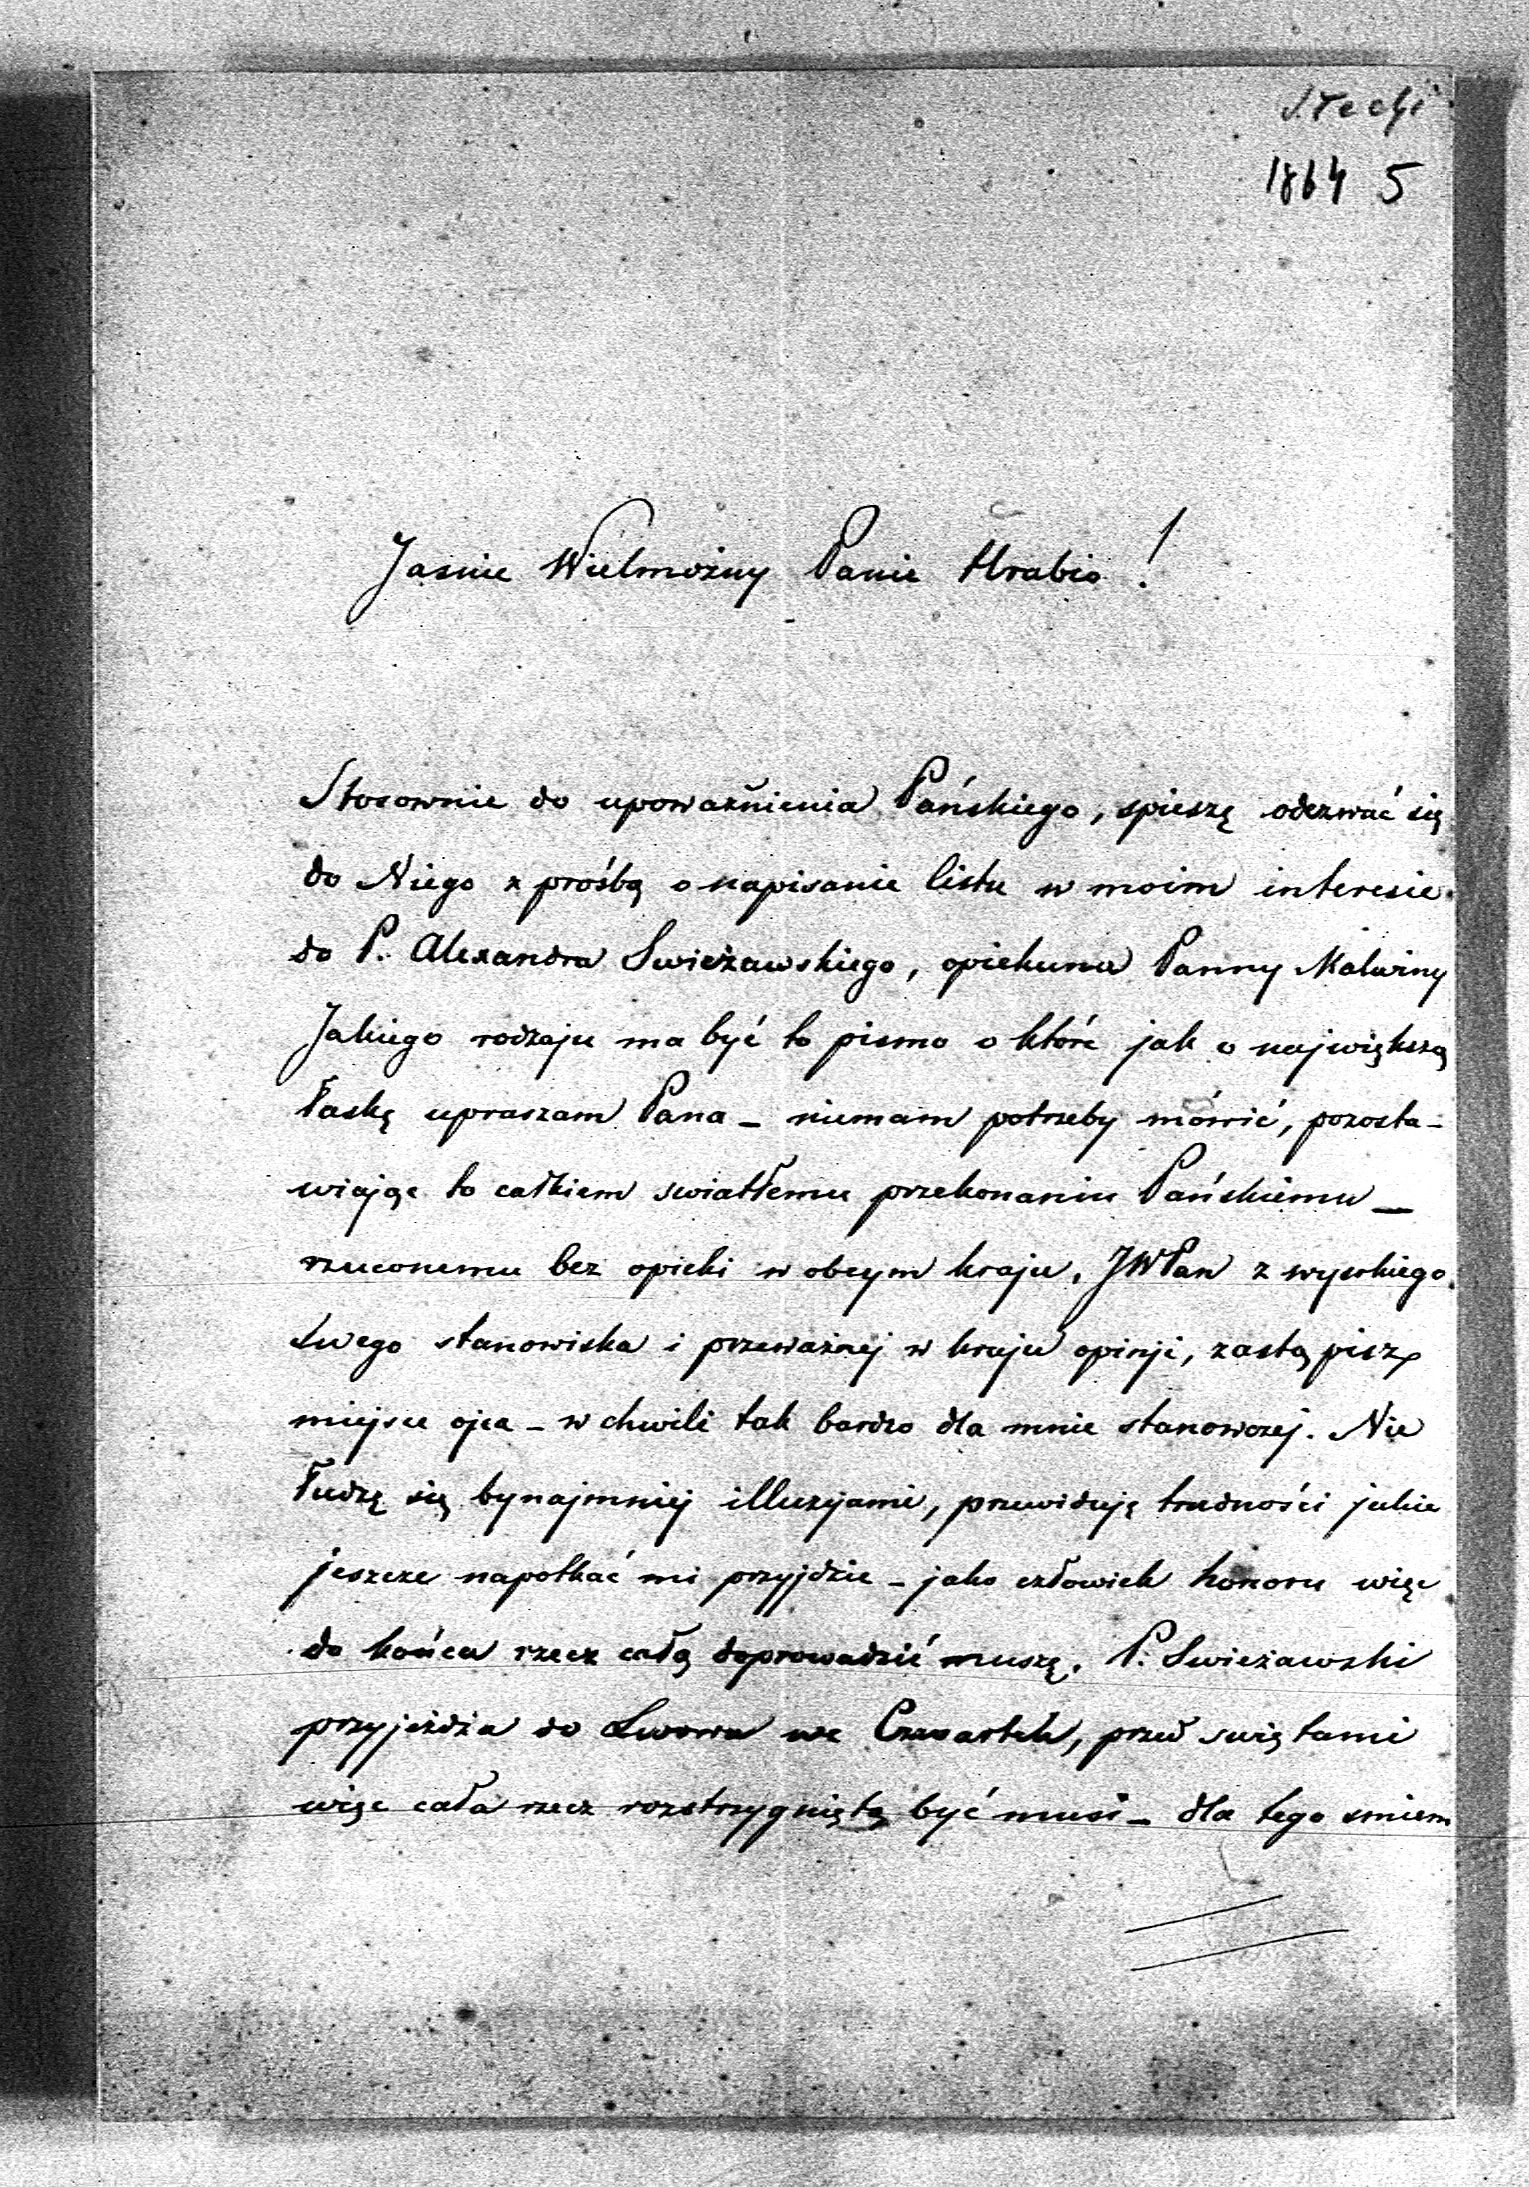 Stecki
1864 5
Jasnie Wielmożny Panie Hrabio!
Stosownie do upoważnienia Pańskiego, spieszę odezwać się
do Niego z prośbą o napisanie listu w moim interesie
do P. Alexandra Swieżawskiego, opiekuna Panny Malwiny
Jakiego rodzaju ma być to pismo o które jak o największą
łaskę upraszam Pana – niemam potrzeby mówić, pozosta-
wiając to całkiem swiatłemu przekonaniu Pańskiemu –
rzuconemu bez opieki w obcym kraju, JWPan z wysokiego
Swego stanowiska i przeważnej w kraju opinji, zastąpisz
miejsce ojca – w chwili tak bardzo dla mnie stanowczej. Nie
łudzę się bynajmniej illuzyjami, przewiduję trudności jakie
jeszcze napotkać mi przyjdzie – jako człowiek honoru więc
do końca rzecz całą doprowadzić muszę. P. Swieżawski
przyjeżdża do Lwowa we Czwartek, przed swiętami
więc cała rzecz rozstrzygniętą być musi – dla tego smiem